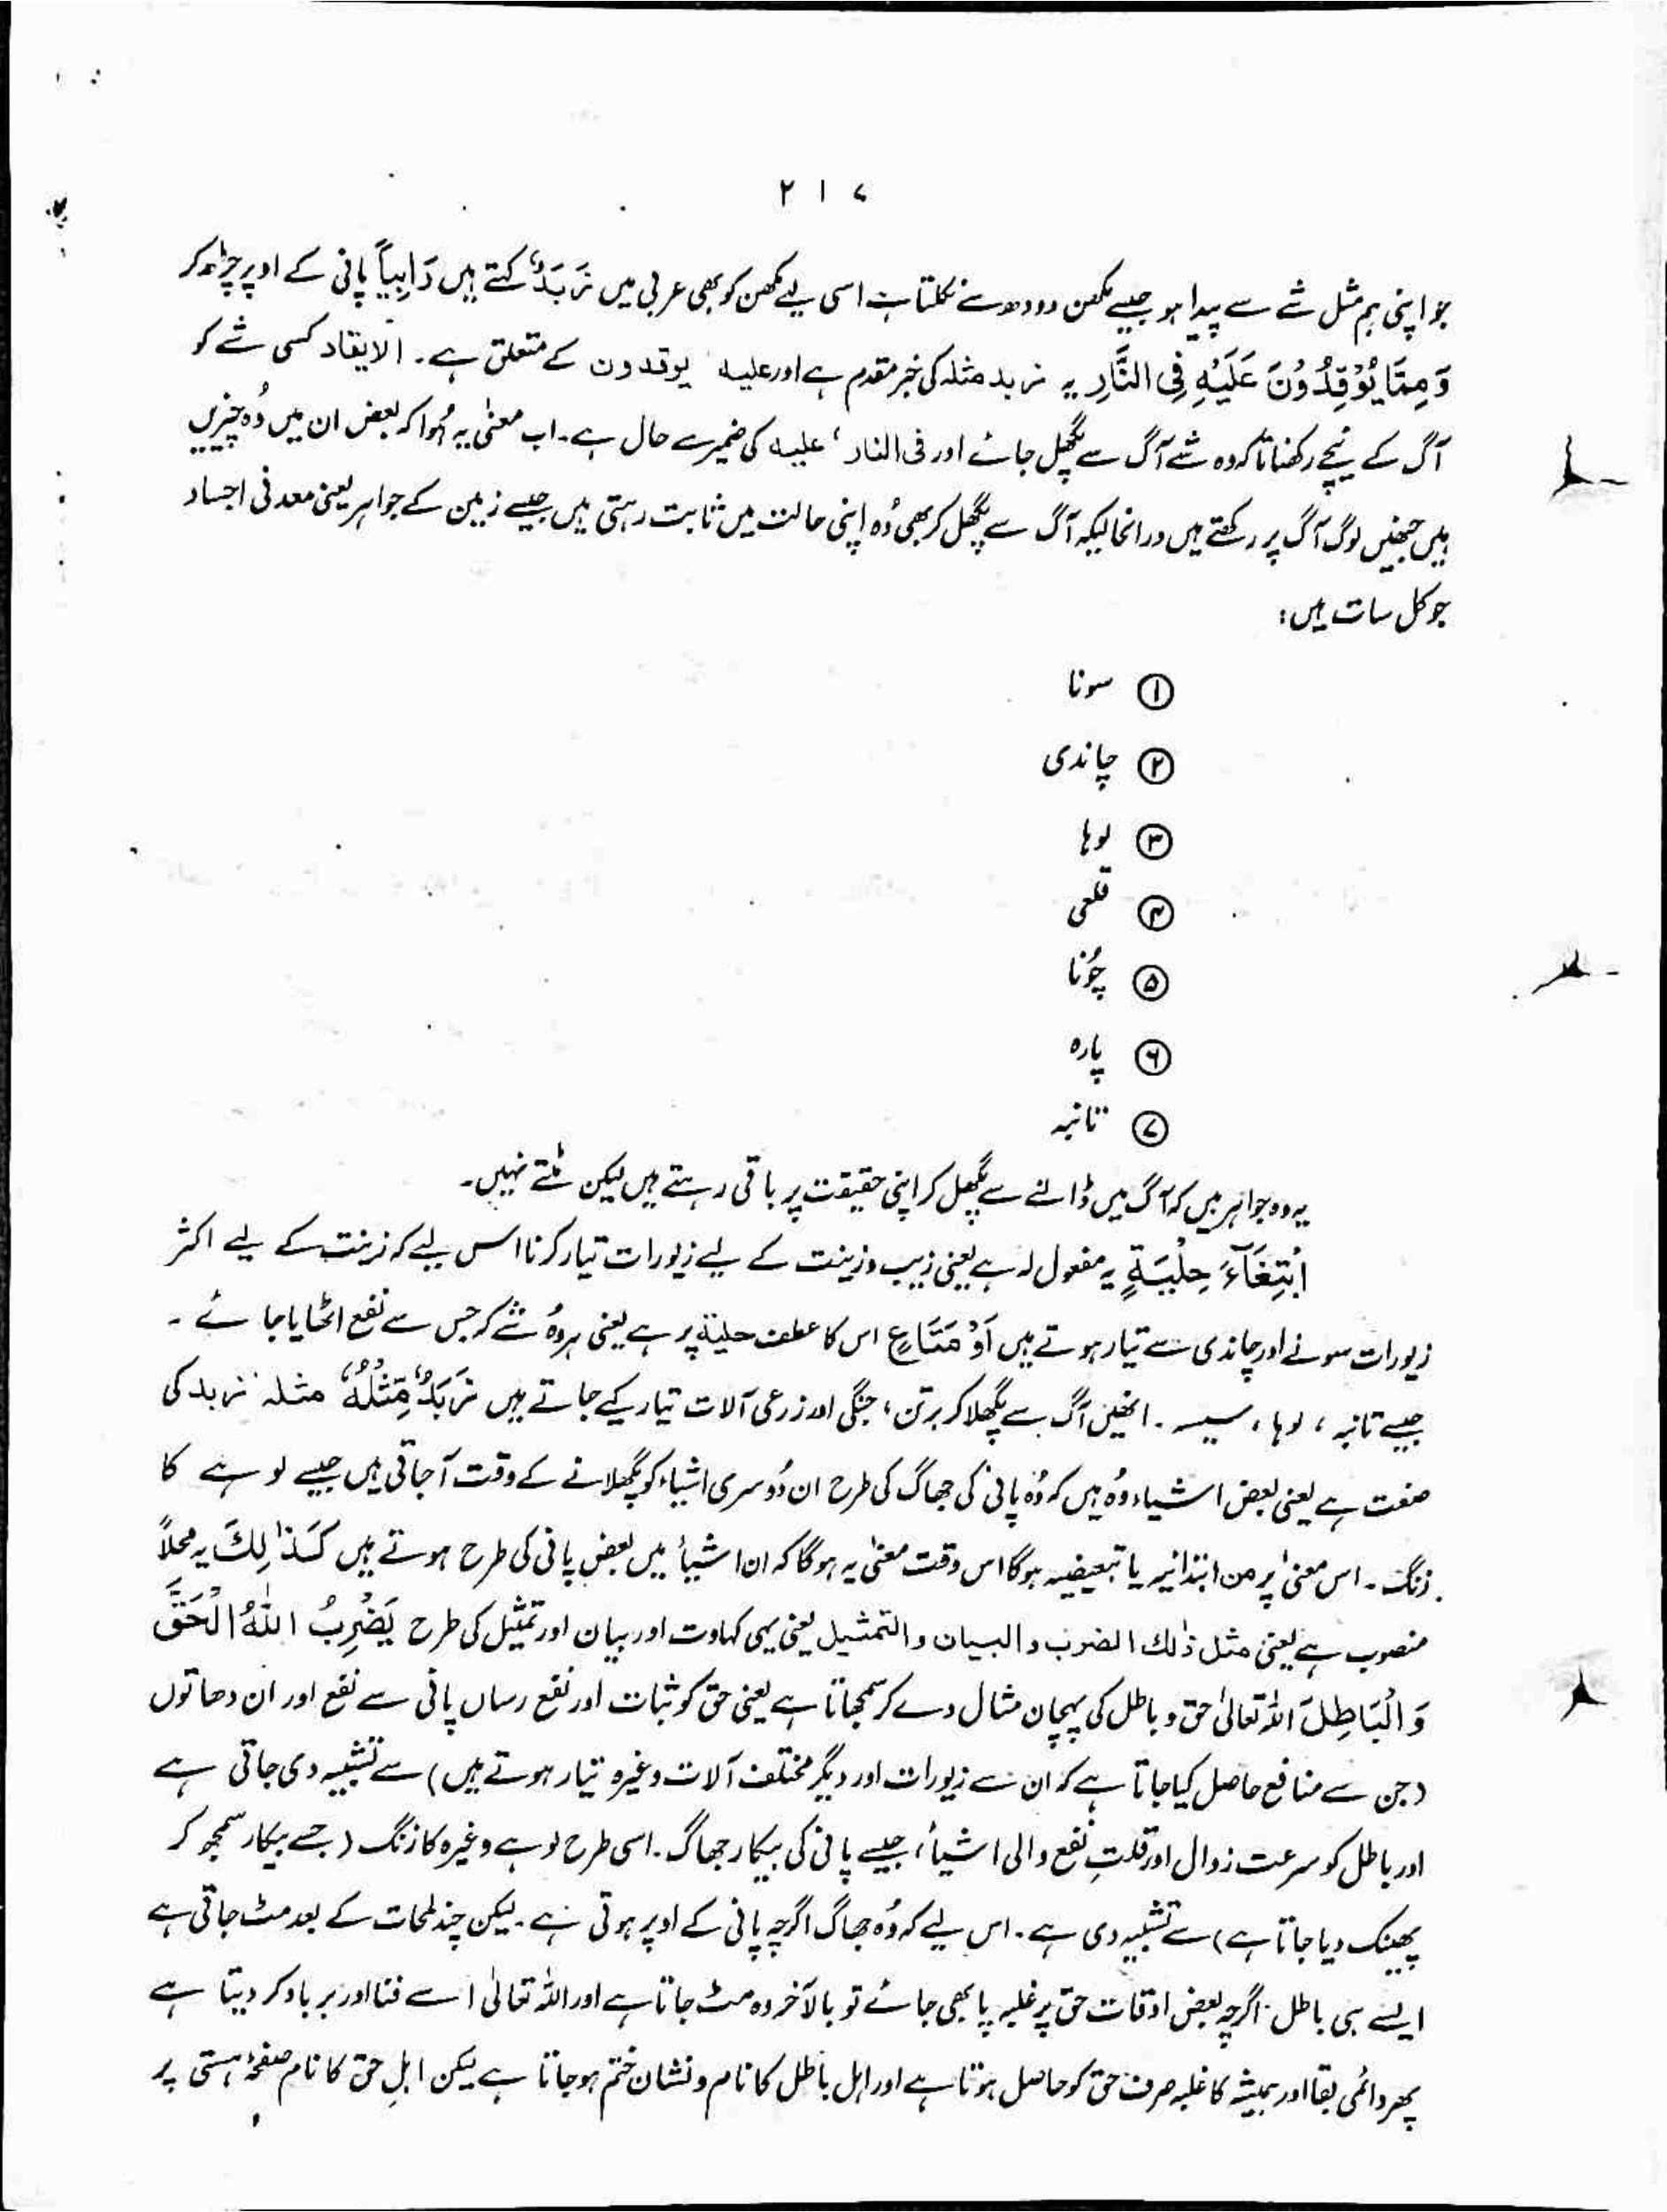 ۲۱۷
جو اپنی ہم مثل شے سے پیدا ہو جیسے مکھن دودھ سے نکلتا ہے اسی لیے مکھن کو بھی عربی میں زَبَدٌ کہتے ہیں رَابِیاً پانی کے اوپر چڑھ کر
وَمِمَّا يُوْقِدُوْنَ عَلَيْهِ فِى النَّارِ یہ زبد مثله کی خبر مقدم ہے اور علیہ یوقدون کے متعلق ہے۔ الایقاد کسی شے کو
آگ کے نیچے رکھنا تاکہ وہ شے آگ سے پگھل جائے اور فی النار، علیہ کی ضمیر سے حال ہے۔ اب معنیٰ یہ ہُوا کہ بعض ان میں وُہ چیزیں
ہیں جنھیں لوگ آگ پر رکھتے ہیں درانحالیکہ آگ سے پگھل کر بھی وُہ اپنی حالت میں ثابت رہتی ہیں جیسے زمین کے جواہر یعنی معدنی اجساد
جو کل سات ہیں:
① سونا
② چاندی
③ لوہا
④ قلعی
⑤ چُونا
⑥ پارہ
⑦ تانبہ
یہ وہ جواہر ہیں کہ آگ میں ڈالنے سے پگھل کر اپنی حقیقت پر باقی رہتے ہیں لیکن مٹتے نہیں۔
ابْتِغَآءَ حِلْيَةٍ یہ مفعول لہ ہے یعنی زیب و زینت کے لیے زیورات تیار کرنا اس لیے کہ زینت کے لیے اکثر
زیورات سونے اور چاندی سے تیار ہوتے ہیں اَوْ مَتَاعٍ اس کا عطف حلیة پر ہے یعنی ہر وہُ شے کہ جس سے نفع اٹھایا جائے۔
جیسے تانبہ، لوہا، سیسہ۔ انھیں آگ سے پگھلا کر برتن، جنگی اور زرعی آلات تیار کیے جاتے ہیں زَبَدٌ مِّثْلُهٗ مثله زبد کی
صفت ہے یعنی بعض اشیاء وُہ ہیں کہ وُہ پانی کی جھاگ کی طرح ان دُوسری اشیاء کو پگھلانے کے وقت آجاتی ہیں جیسے لوہے کا
زنگ۔ اس معنیٰ پر من ابتدائیہ یا تبعیضیہ ہوگا اس وقت معنیٰ یہ ہوگا کہ ان اشیأ میں بعض پانی کی طرح ہوتے ہیں كَذٰلِكَ یہ محلاً
منصوب ہے یعنی مثل ذٰلك الضرب والبیان والتمثیل یعنی یہی کہاوت اور بیان اور تمثیل کی طرح يَضْرِبُ اللّٰهُ الْحَقَّ
وَالْبَاطِلَ اللہ تعالیٰ حق و باطل کی پہچان مثال دے کر سمجھاتا ہے یعنی حق کو ثبات اور نفع رساں پانی سے نفع اور ان دھاتوں
(جن سے منافع حاصل کیا جاتا ہے کہ ان سے زیورات اور دیگر مختلف آلات وغیرہ تیار ہوتے ہیں) سے تشبیہ دی جاتی ہے
اور باطل کو سرعت زوال اور قلتِ نفع والی اشیأ، جیسے پانی کی بیکار جھاگ۔ اسی طرح لوہے وغیرہ کا زنگ (جسے بیکار سمجھ کر
پھینک دیا جاتا ہے) سے تشبیہ دی ہے۔ اس لیے کہ وُہ جھاگ اگرچہ پانی کے اوپر ہوتی ہے۔ لیکن چند لمحات کے بعد مٹ جاتی ہے
ایسے ہی باطل اگرچہ بعض اوقات حق پر غلبہ پا بھی جائے تو بالآخر وہ مٹ جاتا ہے اور اللہ تعالیٰ اسے فنا اور برباد کر دیتا ہے
پھر دائمی بقا اور ہمیشہ کا غلبہ صرف حق کو حاصل ہوتا ہے اور اہل باطل کا نام و نشان ختم ہو جاتا ہے لیکن اہلِ حق کا نام صفحۂ ہستی پر